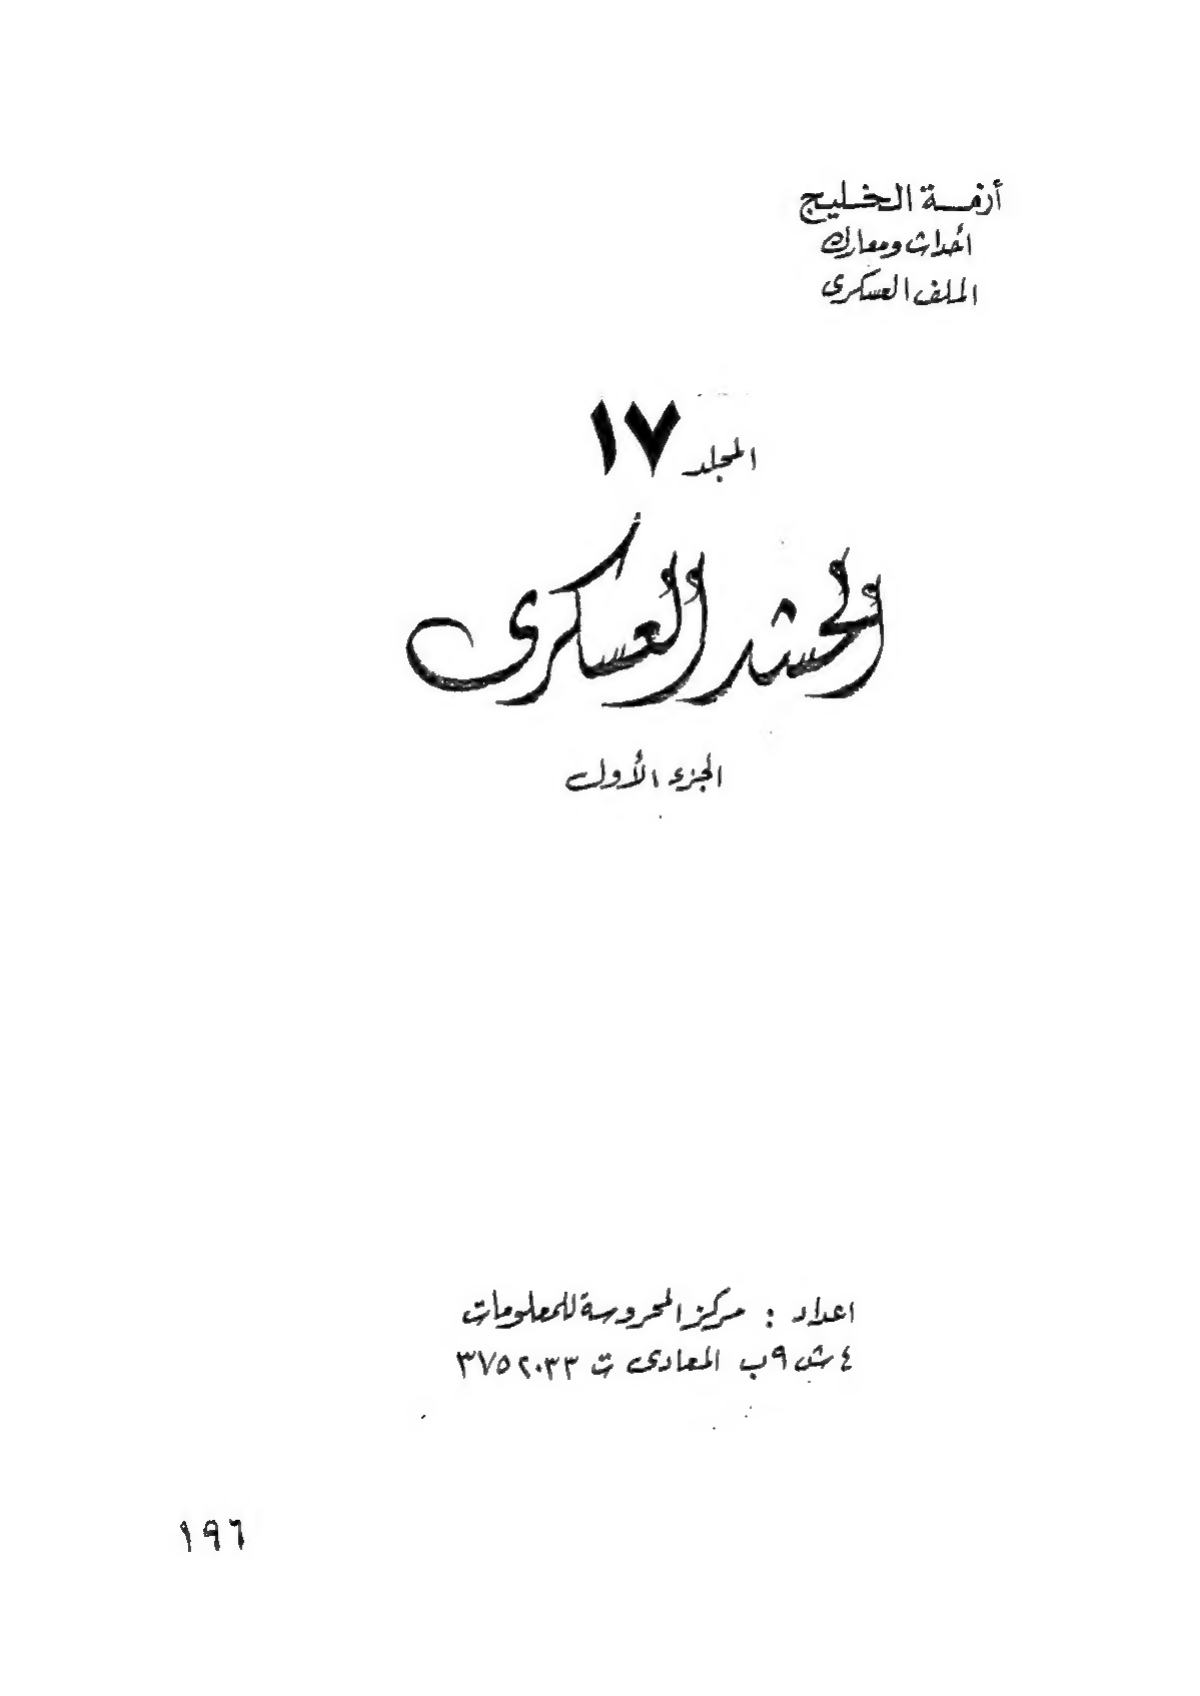 أزمة الخليج
أحداث ومعارك
الملف العسكرى
المجلد ١٧
الحشد العسكرى
الجزء الأول
اعداد : مركز المحروسة للمعلومات
٤ ش ٩ب المعادى ت ٣٧٥٢٠٣٣
١٩٦